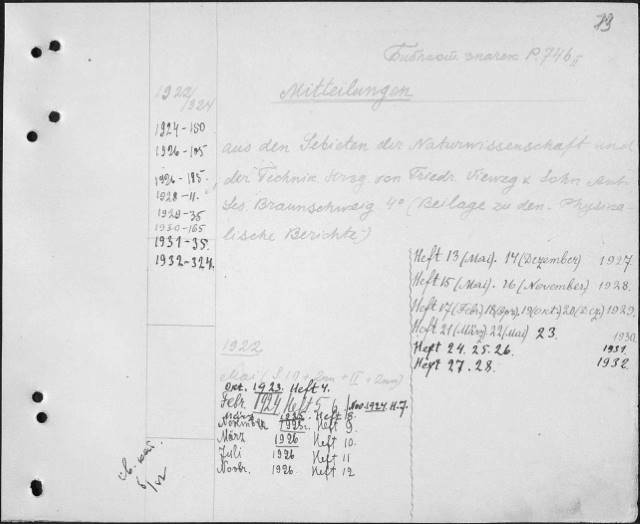 73
P. 746 II
Mitteilungen
1922/1924
1924-150
1926-195
1926-185.
1928-11.
1929-35
1930-165
1931-35.
1932-324.
aus den Gebieten der Naturwissenschaft und
der Technik Hrsg. von Friedr. Vieweg & Sohn Akt.
Ges. Braunschweig 4° (Beilage zu den "Physica-
lische Berichte")
Heft 13 (Mai). 14 (Dezember) 1927
Heft 15 (Mai). 16 (November) 1928.
Heft 17 (Febr) 18 (Apr). 19 (Okt.) 20 (Dez) 1929.
Heft 21 (März) 22 (Mai) 23. 1930.
Heft 24. 25. 26. 1931.
Heft 27. 28. 1932.
1922
Mai
Okt. 1923. Heft 4.
Febr. 1924 / Heft 5 / Nov 1924. H. 7.
März 1925. Heft 8.
November 1925. Heft 9.
März 1926 Heft 10.
Juli 1926 Heft 11
Novbr. 1926. Heft 12